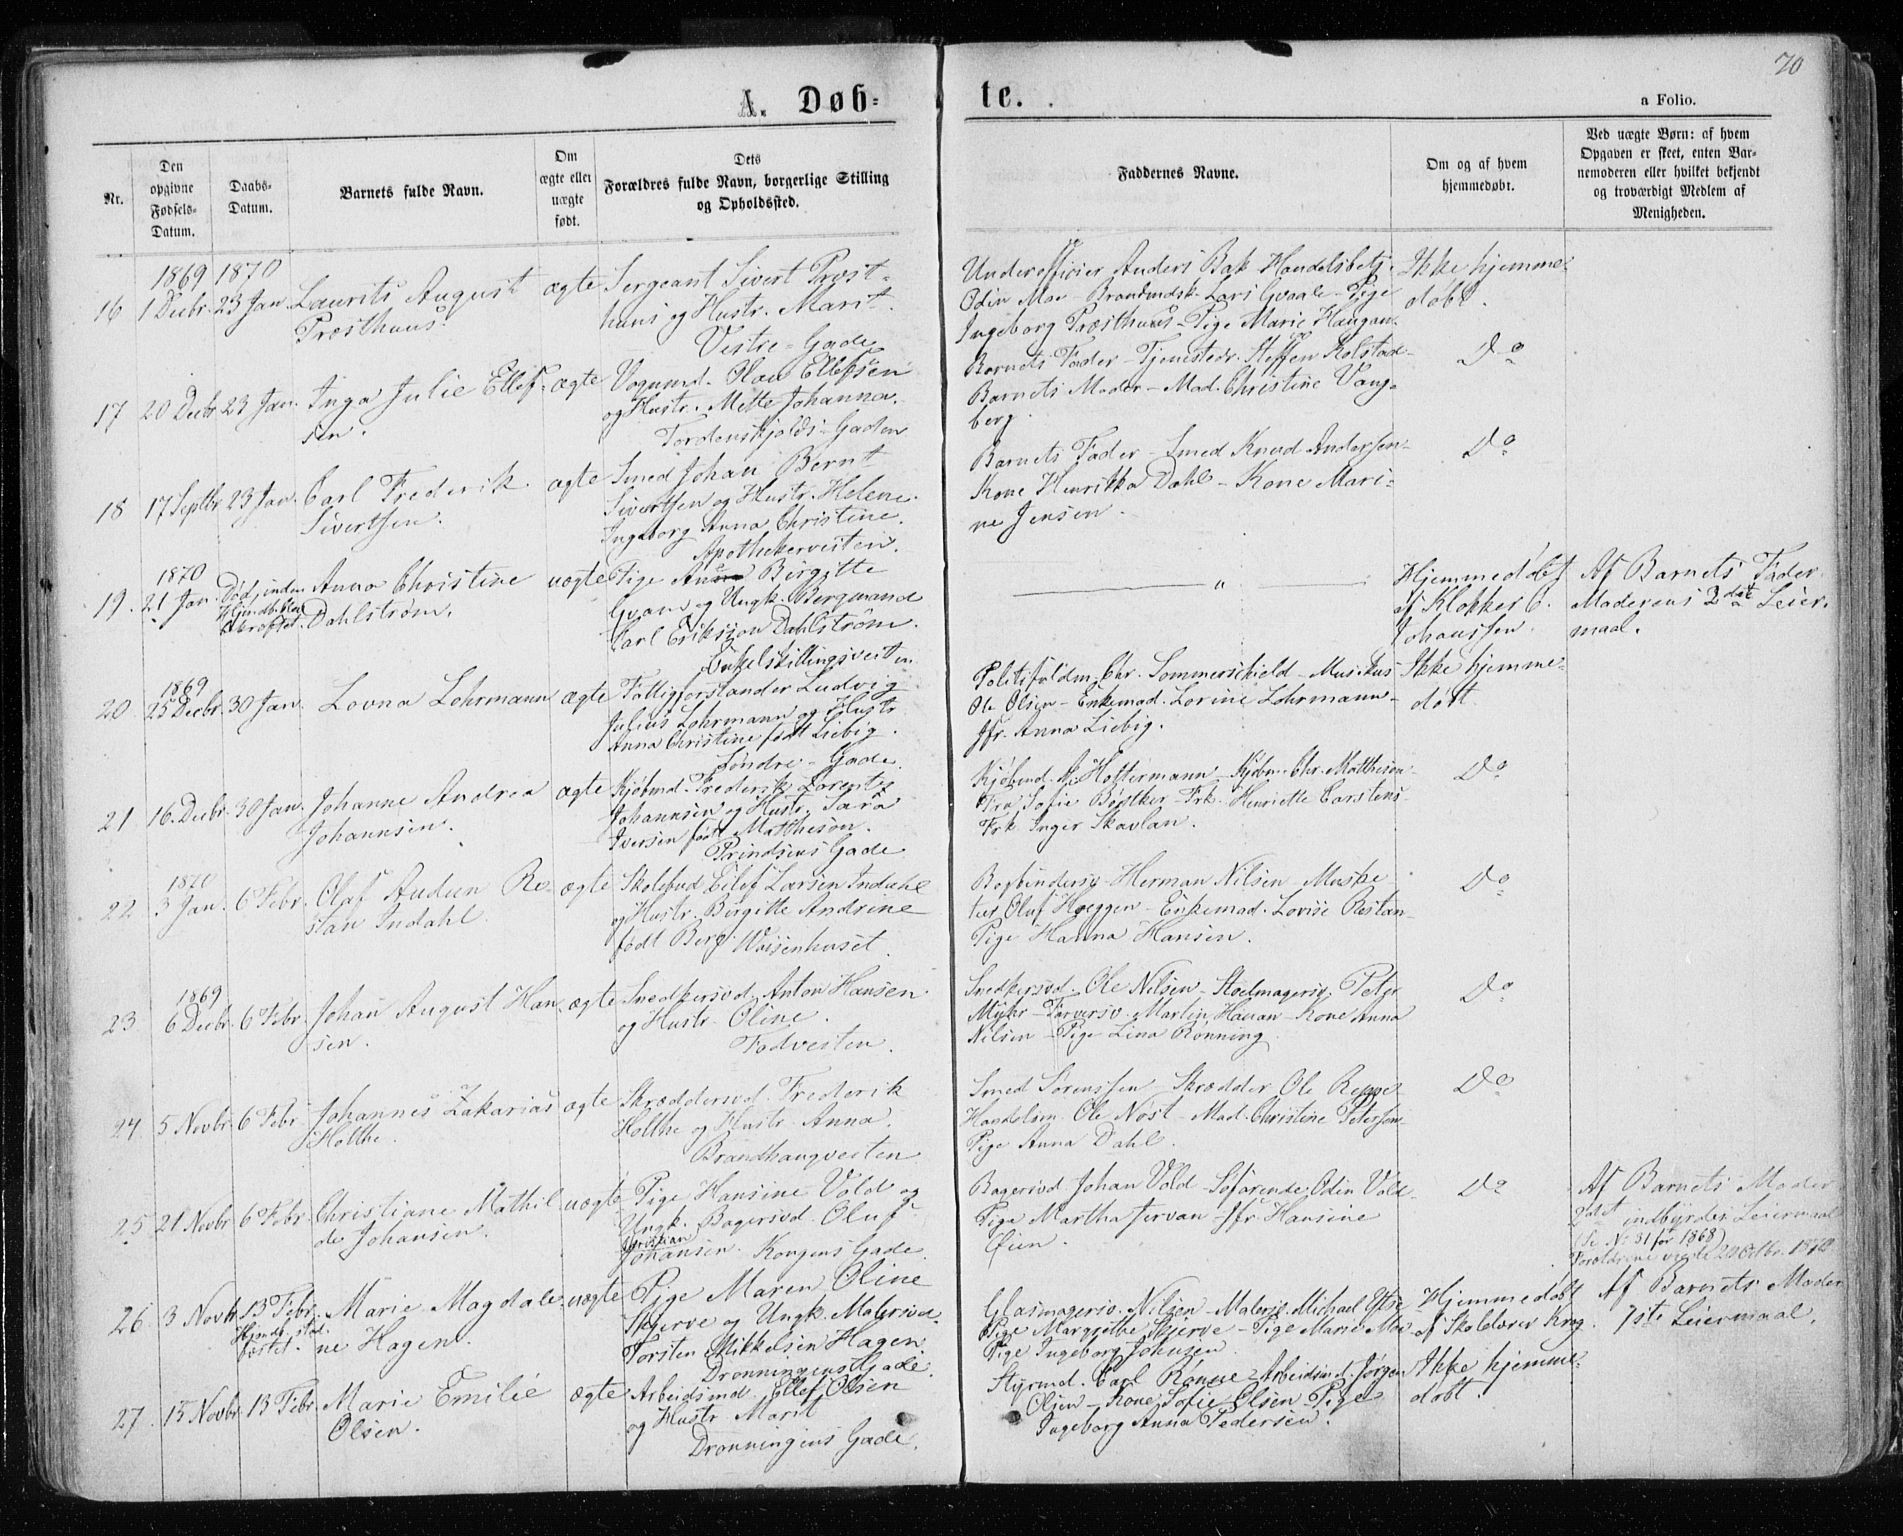 70
A. Døb-
te.
a Folio.
Nr.
Den opgivne Fødsels-Datum.
Daabs-Datum.
Barnets fulde Navn.
Om ægte eller uægte født.
Dets Forældres fulde Navn, borgerlige Stilling og Opholdssted.
Faddernes Navne.
Om og af hvem hjemmedøbt.
Ved uægte Børn: af hvem Opgaven er skeet, enten Barnemoderen eller hvilket bekjendt og troværdigt Medlem af Menigheden.
1869 1870
16 1 Decbr. 23 Jan. Laurits August
Præsthuus.
ægte
Sergeant Sivert Præst-
huus og Hustr. Marit.
Vestre-Gade
Underofficier Anders Bak - Handelsbetj.
Odin Moe - Brandmdsk. Lars Qvaale - Pige
Ingeborg Præsthuus - Pige Marie Haugan.
Ikke hjemme-
døbt.
17 20 Decbr. 23 Jan. Inga Julie Ellef-
sen.
ægte
Vognmd. Olaus Ellefsen
og Hustr. Mette Johanna.
Tordenskjolds-Gaden
Barnets Fader - Tjenestedr. Steffen Kolstad -
Barnets Moder - Mad. Christine Vang-
berg.
Do
18 17 Septbr. 23 Jan. Carl Frederik
Sivertsen.
ægte
Smed Johan Bernt
Sivertsen og Hustr. Helene
Ingeborg Anna Christine.
Apothekerveiten.
Barnets Fader - Smed Knud Andersen -
Kone Henrikka Dahl - Kone Mari-
ne Jensen.
Do
1870
19. 21 Jan. Død, inden
Hjmdb. blev
bekræftet.
Anna Christine
Dahlström.
uægte
Pige Anne Birgitte
Gvam og Ungk. Bergmand
Carl Eriksson Dahlström.
Enkeltskillingsveiten
"
Hjemmedøbt
af Klokker O.
Johanssen.
Af Barnets Fader.
Moderens 2det Leier-
maal.
1869
20 25 Decbr. 30 Jan. Lovna Lohrmann
ægte
Fattigforstander Ludvig
Julius Lohrmann og Hustr
Anna Christine født Liebig.
Søndre-Gade.
Politifuldm. Chr. Sommerschield - Musikus
Ole Olsen - Enkemad. Lorine Lohrmann -
Jfr. Anna Liebig.
Ikke hjemme-
døbt.
21 16. Decbr. 30 Jan. Johanne Andrea
Johannsen.
ægte
Kjøbmd. Frederik Lorentz
Johannsen og Hustr. Sara
Iversen født Matthesen.
Prindsens Gade
Kjøbmd. A. Hottermann - Kjøbm. Chr. Matthesen -
Fru Sofie Bødtker - Frk. Henriette Carstens -
Frk. Inger Skavlan.
Do
1870
22 3 Jan. 6 Febr. Olaf Audun Re-
stan Indahl.
ægte
Skolebud Eilef Larsen Indahl
og Hustr. Birgitte Andrine
født Berg Waisenhuset.
Bogbindersv. Herman Nilsen - Muske-
teer Oluf Hoeggen - Enkemad. Lovise Restan -
Pige Hanna Hansen.
Do
1869
23 6 Decbr. 6 Febr. Johan August Han-
sen.
ægte
Snedkersvd. Anton Hansen
og Hustr. Oline.
Fadveiten.
Snedkersvd. Ole Nilsen - Stolmagersv. Peter
Myhr - Farversv. Martin Havan - Kone Anna
Nilsen - Pige Lina Rønning.
Do
24 5 Novbr. 6 Febr. Johannes Zakarias
Holthe.
ægte
Skræddersvd. Frederik
Holthe og Hustr. Anna.
Brandhaugveiten
Smed Sørenssen - Skrædder Ole Reppe -
Handelsm. Ole Nøst - Mad. Christine Petersen -
Pige Anna Dahl.
Do
25 21 Novbr. 6 Febr. Christiane Mathil-
de Johansen.
uægte
Pige Hansine Vold og
Ungk. Bagersvd. Oluf
Christian
Johansen. Kongens Gade.
Bagersvd Johan Vold - Søfarende Odin Vold -
Pige Martha Jervan - Jfr. Hansine
Øien.
Do
Af Barnets Moder
2det indbyrdes Leiermaal
(Se No 31 for 1868)
Forældrene viede 20 Octbr. 1870
26 3 Novbr 13 Febr.
Hjmdb. stad-
fæstet.
Marie Magdale-
ne Hagen.
uægte
Pige Maren Oline
Skjerve og Ungk. Malersvd.
Torsten Mikkelsen Hagen
Dronningens Gade.
Glasmagersv. Nilsen - Malersv. Michael Ytse-
Pige Margrethe Skjerve - Pige Marie Moe -
Pige Ingeborg Johnsen.
Hjemmedøbt
af Skolelærer Krog.
Af Barnets Moder
1ste Leiermaal.
27 15 Novbr. 13 Febr. Marie Emilie
Olsen.
ægte
Arbeidsmd. Ellef Olsen
og Hustr Marit
Dronningens Gade.
Styrmd. Carl Rønne - Arbeidsmd. Jørgen
Olsen - Kone Sofie Olsen - Pige
Ingeborg Anna Pedersen.
Ikke hjemme-
døbt.